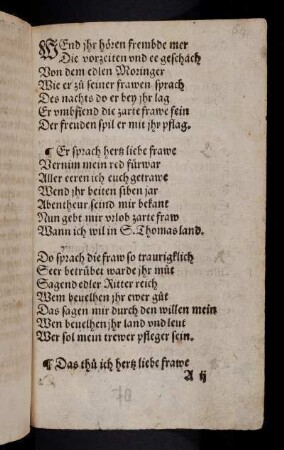 WEnd jhr hören frembde mer
Die vorzeiten vnd ee geschach
Von dem edlen Moringer
Wie er zů seiner frawen sprach
Des nachts do er bey jhr lag
Er vmbfieng die zarte frawe sein
Der freuden spil er mit jhr pflag.
¶ Er sprach hertz liebe frawe
Vernim mein red fürwar
Aller eeren ich euch getrawe
Wend jhr beiten siben jar
Abentheur seind mir bekant
Nun gebt mir vrlob zarte fraw
Wann ich wil in S. Thomas land.
Do sprach die fraw so traurigklich
Seer betrübet warde jhr můt
Sagend edler Ritter reich
Wem beuelhen jhr ewer gůt
Das sagen mir durch den willen mein
Wen beuelhen jhr land vnd leut
Wer sol mein trewer pfleger sein.
¶ Das thů ich hertz liebe frawe
A ij